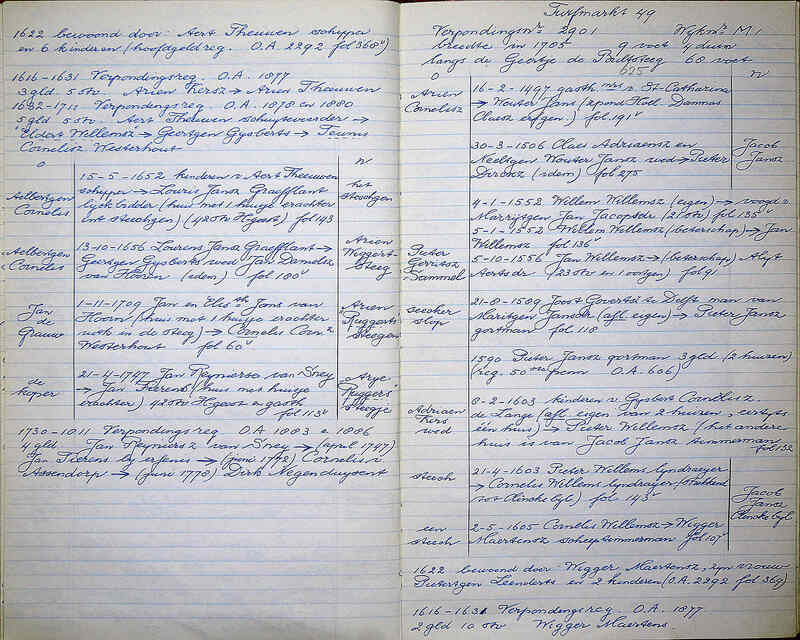 1622 bewoond door Aert Theuwen schipper
en 6 kinderen (hoofdgeldreg. O.A. 2292 fol 368v)
1616-1631 Verpondingsreg. O.A. 1877
3 gld. 5 stv. Arien Kersz → Arien Theuwen
1632-1711 Verpondingsreg. O.A. 1878 en 1880
5 gld 5 stv. Aert Theuwen schuytvoerder →
Eldert Willemsz → Geertgen Gysberts → Teunis
Cornelisz Westerhout
o n
Aelbertgen Cornelis
15-5-1652 kinderen v Aert Theeuwen
schipper → Louris Jansz Graefflant
lijstladder (huis met 1 huisje erachter
int steechgen) (42 stv Hgast) fol 143
het steechgen
Aelbergen Cornelis
13-10-1656 Lourens Jansz Graefflant →
Geertgen Gysberts wed Jan Damelsz
van Hooren (idem) fol 180v
Arien Wiggert-steeg
Jan de Grauw
1-11-1709 Jan en Elisth Jans van
Hoorn (huis met 1 huisje erachter
ook in de steeg) → Cornelis Corn.z
Westerhout fol 60v
Arien Ruggertsteegen
de keper
21-4-1747 Jan Reyniersz van Sney
→ Jan Tierens (huis met huisje
erachter) 42 stv Hgast en gasth
fol 113v
Arye Ruggers' steegje
1730-1811 Verpondingsreg O.A. 1883 en 1886
4 gld. Jan Reyniersz van Sney → (april 1747)
Jan Tierens by erfenis → (juni 1772) Cornelis v
Assendorp → (juni 1778) Dirk Negenduysent
Turfmarkt 49
Verpondingsnr. 2901 Wyknr. M 1
breedte in 1785 9 voet 4 duim
langs de Geertje de Bultsteeg 68 voet
625
o n
Arien Cornelisz
16-2-1497 gasth. mrs v. St-Catharina
→ Wouter Jans (2 pond Holl. Dammas
Claesz erfgen.) fol. 191v
30-3-1506 Claes Adriaensz en
Neeltgen Wouter Jansz wed → Pieter
Dircxz (idem) fol 275
Jacob Jansz
4-1-1552 Willem Willemsz (eigen) → voogd v
Marrijtgen Jan Jacopsdr (21 stv) fol 135v
5-1-1552 Willem Willemsz (beterschap) → Jan
Willemsz fol 136v
Pieter Gerritsz Sammel
5-10-1556 Jan Willemsz → (beterschap) Alyt
Aertsdr (23 stv en 1 oortgen) fol 91
seecker slop
21-8-1589 Joost Govertsz te Delft man van
Maritgen Jansdr (afl eigen) → Pieter Jansz
gortman fol 118
1590 Pieter Jansz gortman 3 gld (2 huizen)
(reg. 50ste penn O.A. 606)
Adriaen Kers wed
8-2-1603 kinderen v. Gysbert Cornelisz.
de Lange (afl eigen van 2 huizen, eertyts
één huis) → Pieter Willemsz (het andere
huis is van Jacob Jansz timmerman
fol 132
steech
21-4-1603 Pieter Willems lyndraeyer
→ Cornelis Willems lyndraeyer (strekkend
tot Clincke byl) fol 143v
Jacob Jansz Clincke byl
een steech
2-5-1605 Cornelis Willemsz → Wigger
Maertensz scheeptimmerman fol 107v
1622 bewoond door Wigger Maertensz, zyn vrouw
Pietertgen Leenderts en 2 kinderen (O.A. 2292 fol 369)
1616-1631 Verpondingsreg. O.A. 1877
2 gld 10 stv Wigger Maertens